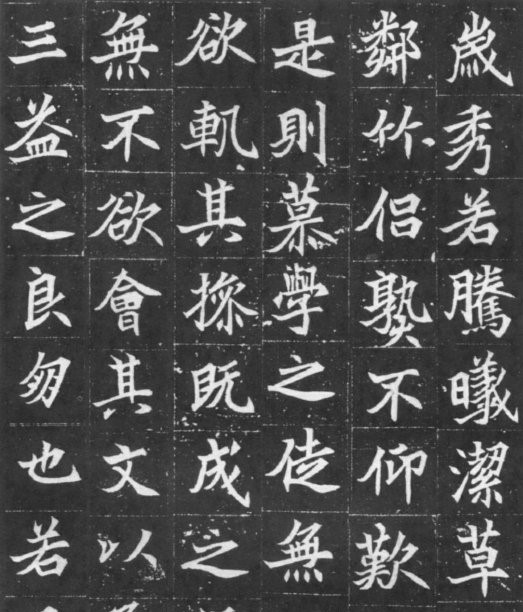 歲秀若騰曦潔草
鄰竹侶熟不仰歎
是則慕學之徒無
欲軌其操既成之
無不欲會其文以
三益之良朋也若